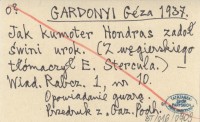 GARDONYI Géza 1937.
Jak Kumoter Hondras zadół
świni urok. (Z węgierskiego
tłomaczył E. Stercula.) —
Wiad. Rabcz. 1, nr 10.
Opowiadanie gwarą.
Przedruk z Gaz. Podh.